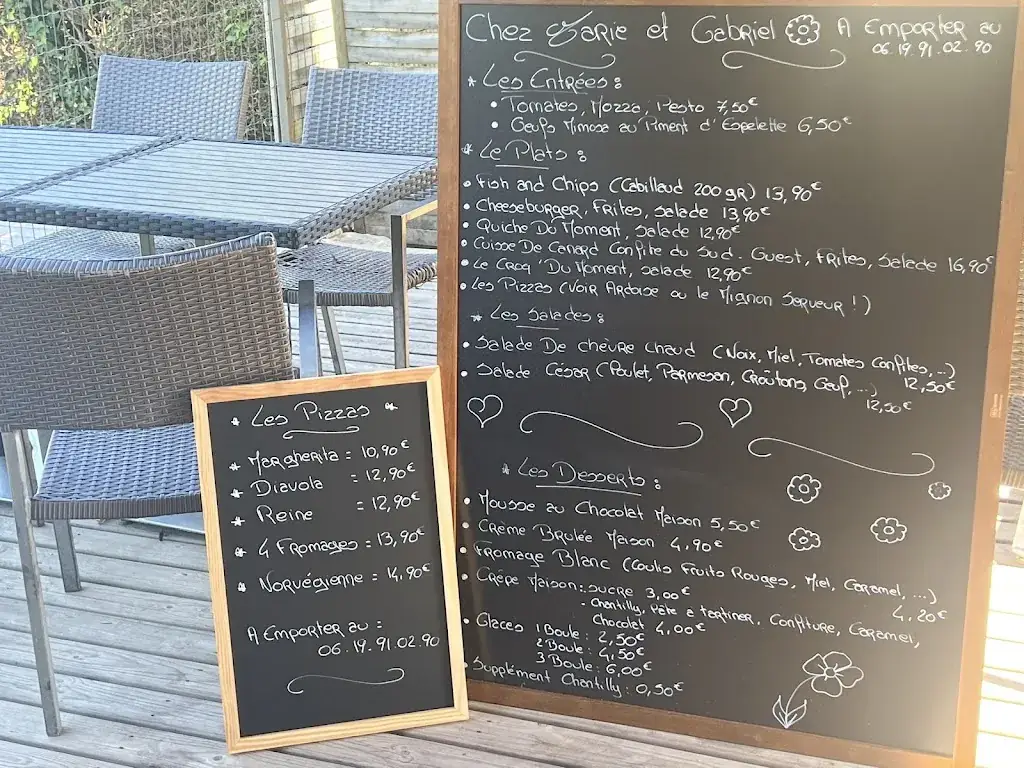 Chez Marie et Gabriel A Emporter au
06.19.91.02.90
* Les Entrées :
• Tomates, Mozza, Pesto 7,50€
• Oeufs Mimosa au Piment d'Espelette 6,50€
* Le Plats :
• Fish and Chips (Cabillaud 200 gr) 13,90€
• Cheeseburger, Frites, Salade 13,90€
• Quiche Du Moment, Salade 12,90€
• Cuisse De Canard Confite du Sud-Ouest, Frites, Salade 16,90€
• Le Croq' Du Moment, Salade 12,90€
• Les Pizzas (Voir Ardoise ou le Mignon Serveur !)
* Les Salades :
• Salade De Chèvre Chaud (Noix, Miel, Tomates Confites,...)
12,50€
• Salade César (Poulet, Parmesan, Croûtons, Oeuf,...)
12,50€
* Les Desserts :
• Mousse au Chocolat Maison 5,50€
• Crème Brulée Maison 4,90€
• Fromage Blanc (Coulis Fruits Rouges, Miel, Caramel, ...)
4,20€
• Crêpe Maison: Sucre 3,00€
- Chantilly, Pâte a tartiner, Confiture, Caramel,
Chocolat 4,00€
• Glaces 1 Boule : 2,50€
2 Boule : 4,50€
3 Boule : 6,00€
• Supplément Chantilly : 0,50€
* Les Pizzas *
* Margherita = 10,90€
* Diavola = 12,90€
* Reine = 12,90€
* 4 Fromages = 13,90€
* Norvégienne = 14,90€
A Emporter au :
06.19.91.02.90